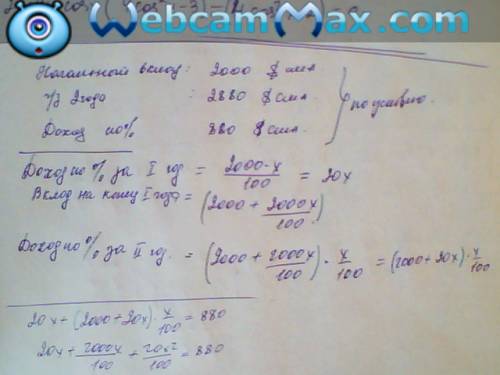 WebcamMax.com
Начальный вклад: 2000 $
ч/з 2 года : 2880 $
Доход по % 880 $
по условию.
Доход по % за I год = 2000·x/100 = 20x
Вклад на конец I года = (2000 + 2000x/100)
Доход по % за II год = (2000 + 2000x/100) · x/100 = (2000 + 20x) · x/100
20x + (2000 + 20x) · x/100 = 880
20x + 2000x/100 + 20x²/100 = 880